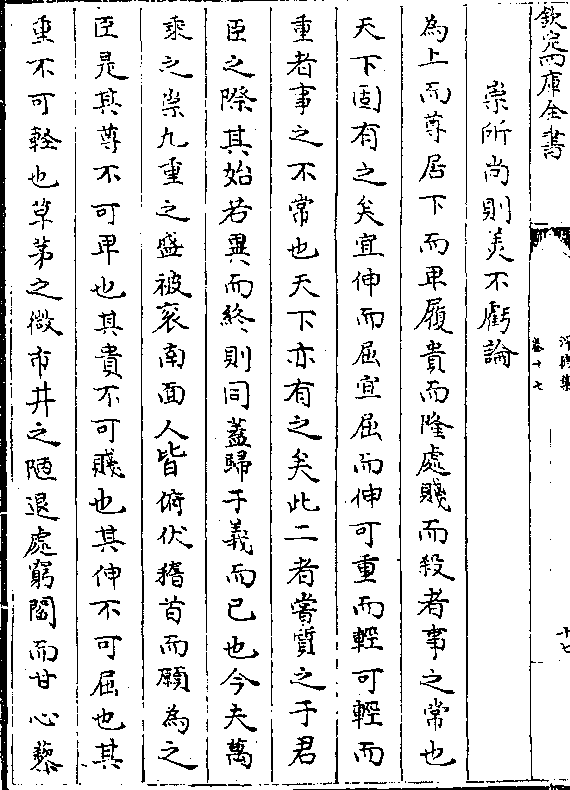 欽定四庫全書
浮沚集
卷十七
十七
崇所尚則美不虧論
為上而尊居下而卑履貴而隆處賤而殺者事之常也
天下固有之矣宜伸而屈宜屈而伸可重而輕可輕而
重者事之不常也天下亦有之矣此二者嘗質之于君
臣之際其始若異而終則同蓋歸于義而已也今夫萬
乘之崇九重之盛被衮南面人皆俯伏稽首而願為之
臣是其尊不可卑也其貴不可賤也其伸不可屈也其
重不可輕也草茅之微市井之陋退處窮閻而甘心藜